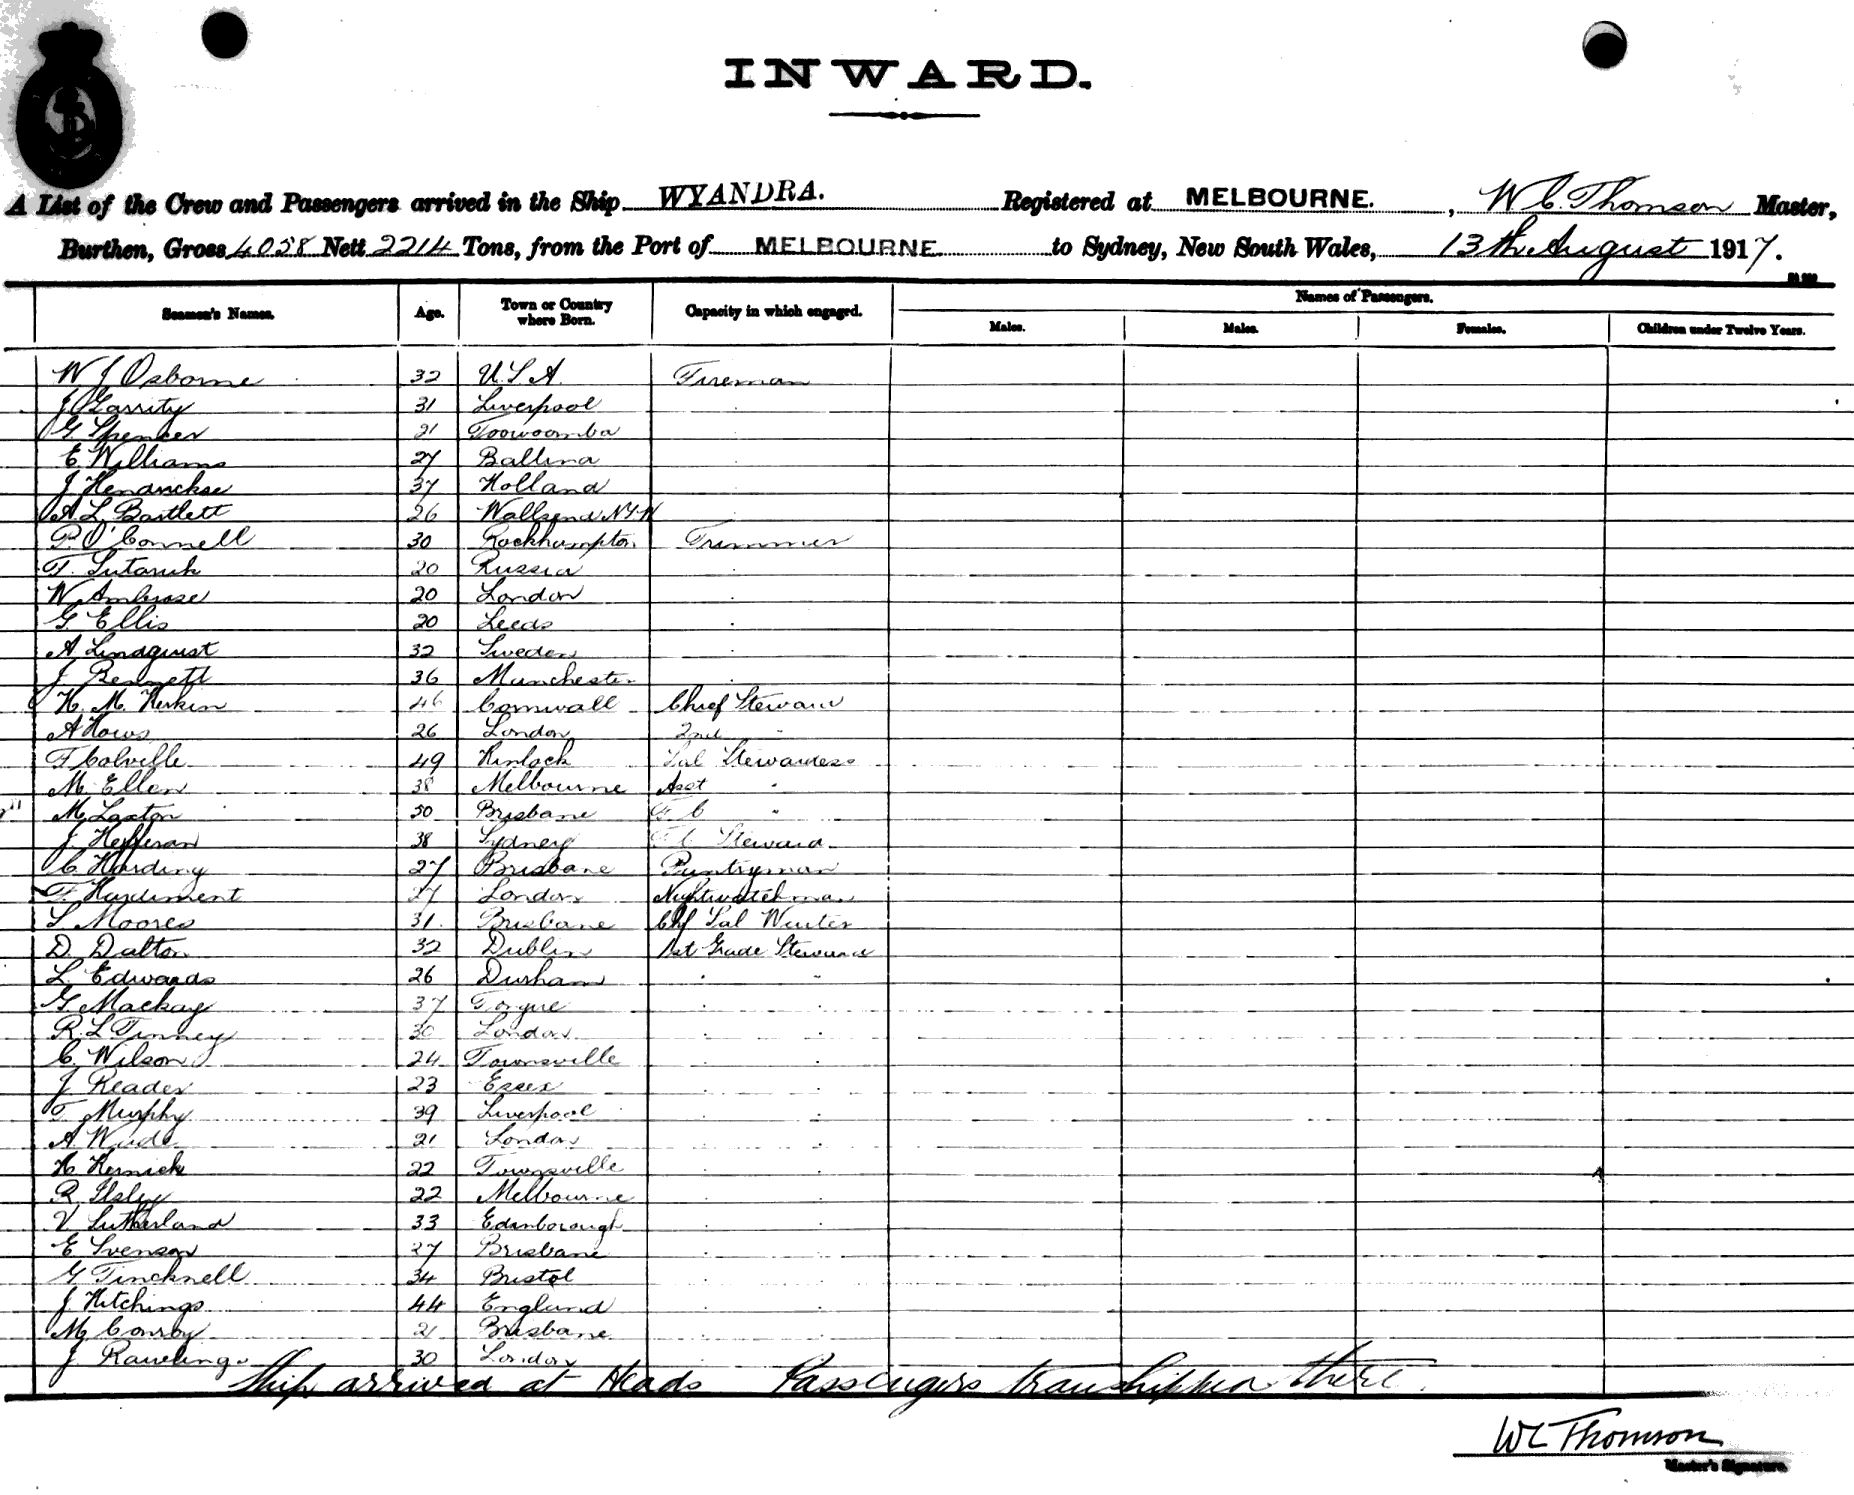 INWARD.
A List of the Crew and Passengers arrived in the Ship WYANDRA. Registered at MELBOURNE. , W C. Thomson Master,
Burthen, Gross 4058 Nett 2214 Tons, from the Port of MELBOURNE to Sydney, New South Wales, 13th August 1917.
Seamen's Names. Age. Town or Country where Born. Capacity in which engaged. Names of Passengers.
Males. Males. Females. Children under Twelve Years.
W J Osborne 32 U.S.A. Fireman
J Garrity 31 Liverpool
G. Spencer 21 Toowoomba
E. Williams 27 Ballina
J Hendrickse 37 Holland
A L Bartlett 26 Wallsend
P. O'Connell 30 Rockhampton Trimmer
F. Sutaruk 20 Russia
W Ambrose 20 London
G. Ellis 20 Leeds
A Lindquist 32 Sweden
J Bennett 36 Manchester
H. M. 46 Cornwall Chief Steward
A Hows 26 London 2nd "
F Colville 49 Kinlock Sal Stewardess
M. Ellen 38 Melbourne Asst "
M Laxton 50 Brisbane "
J. Hefferan 38 Sydney Steward
C. Harding 27 Brisbane Pantryman
F. Hardiment 27 London Nightwatchman
S Moores 31 Brisbane Chf Sal Waiter
D. Dalton 32 Dublin 1st Grade Steward
L Edwards 26 Durham " "
G Mackay 37
R. L Tinney 30 London
C. Wilson 24 Townsville
J Reader 23 Essex
T Murphy 39 Liverpool
A Wade 21 London
H Kernick 22 Townsville
R Ilsley 22 Melbourne
V Sutherland 33 Edinborough
E Svenson 27 Brisbane
G Tincknell 34 Bristol
J Hitchings 44 England
M Conroy 21 Brisbane
J Rawlings 30 London
Ship arrived at Heads Passengers transhipped there.
WC Thomson
Master's Signature.